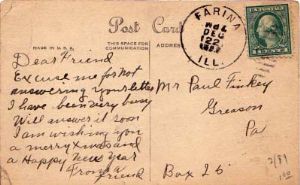 Post Card
MADE IN U.S.A.
THIS SPACE FOR
COMMUNICATION
FARINA
DEC
22
ILL.
Dear Friend
Excuse me for Not
answering your letter
I have been very busy
Will answer it soon
I am wishing you
a merry xmas and
a Happy New Year
From a
friend
Mr Paul Finkey
Greason
Pa
Box 26